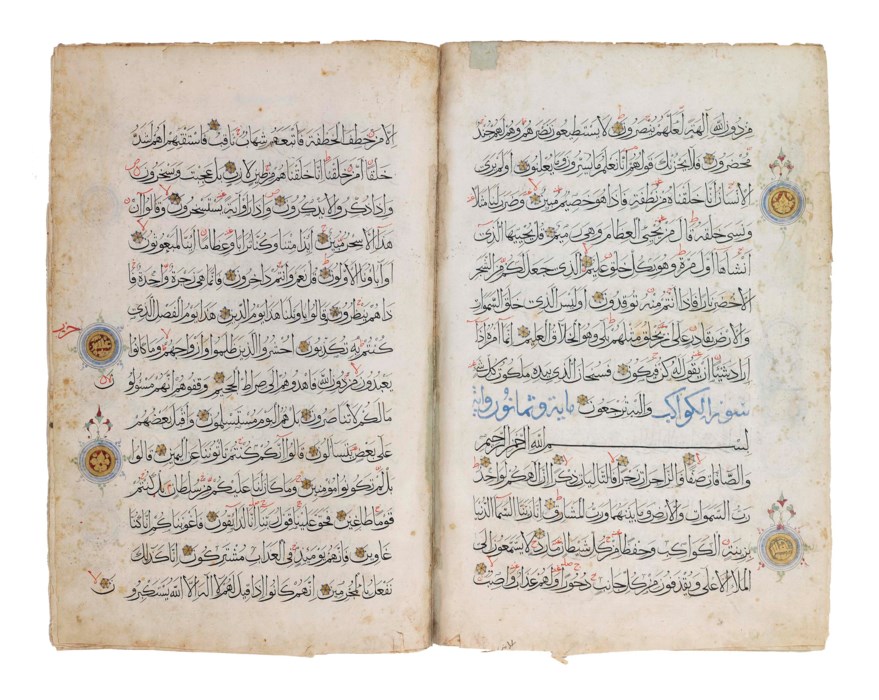 من دون الله آلهة لعلهم ينصرون لا يستطيعون نصرهم وهم لهم جند
محضرون فلا يحزنك قولهم انا نعلم ما يسرون وما يعلنون اولم ير
الانسان انا خلقناه من نطفة فاذا هو خصيم مبين وضرب لنا مثلا
ونسى خلقه قال من يحيى العظام وهى رميم قل يحييها الذى
انشاها اول مرة وهو بكل خلق عليم الذى جعل لكم من الشجر
الاخضر نارا فاذا انتم منه توقدون اوليس الذى خلق السموات
والارض بقادر على ان يخلق مثلهم بلى وهو الخلاق العليم انما امره اذا
اراد شيئا ان يقول له كن فيكون فسبحان الذى بيده ملكوت كل شىء
سورة الكواكب واليه ترجعون ماية وثمانون واية
بسم الله الرحمن الرحيم
والصافات صفا فالزاجرات زجرا فالتاليات ذكرا ان الهكم لواحد
رب السموات والارض وما بينهما ورب المشارق انا زينا السما الدنيا
بزينة الكواكب وحفظا من كل شيطان مارد لا يسمعون الى
الملا الاعلى ويقذفون من كل جانب دحورا ولهم عذاب واصب
الا من خطف الخطفة فاتبعه شهاب ثاقب فاستفتهم اهم اشد
خلقا ام من خلقنا انا خلقناهم من طين لازب بل عجبت ويسخرون
واذا ذكروا لا يذكرون واذا راوا اية يستسخرون وقالوا ان
هذا الا سحر مبين ايذا متنا وكنا ترابا وعظاما اينا لمبعوثون
او اباونا الاولون قل نعم وانتم داخرون فانما هى زجرة واحدة فا
ذا هم ينظرون وقالوا يا ويلنا هذا يوم الدين هذا يوم الفصل الذى
كنتم به تكذبون احشروا الذين ظلموا وازواجهم وما كانوا
حزب
يعبدون من دون الله فاهدوهم الى صراط الجحيم وقفوهم انهم مسئولون
ما لكم لا تناصرون بل هم اليوم مستسلمون واقبل بعضهم
على بعض يتسالون قالوا انكم كنتم تاتوننا عن اليمين قالوا
بل لم تكونوا مومنين وما كان لنا عليكم من سلطان بل كنتم
قوما طاغين فحق علينا قول ربنا انا لذايقون فاغويناكم انا كنا
غاوين فانهم يوميذ فى العذاب مشتركون انا كذلك
نفعل بالمجرمين انهم كانوا اذا قيل لهم لا اله الا الله يستكبرون